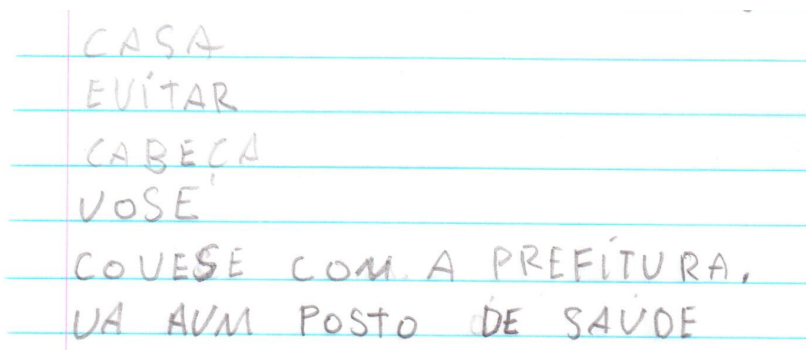 CASA
EVITAR
CABEÇA
VOSÊ
COVESE COM A PREFITURA.
VA AUM POSTO DE SAÚDE